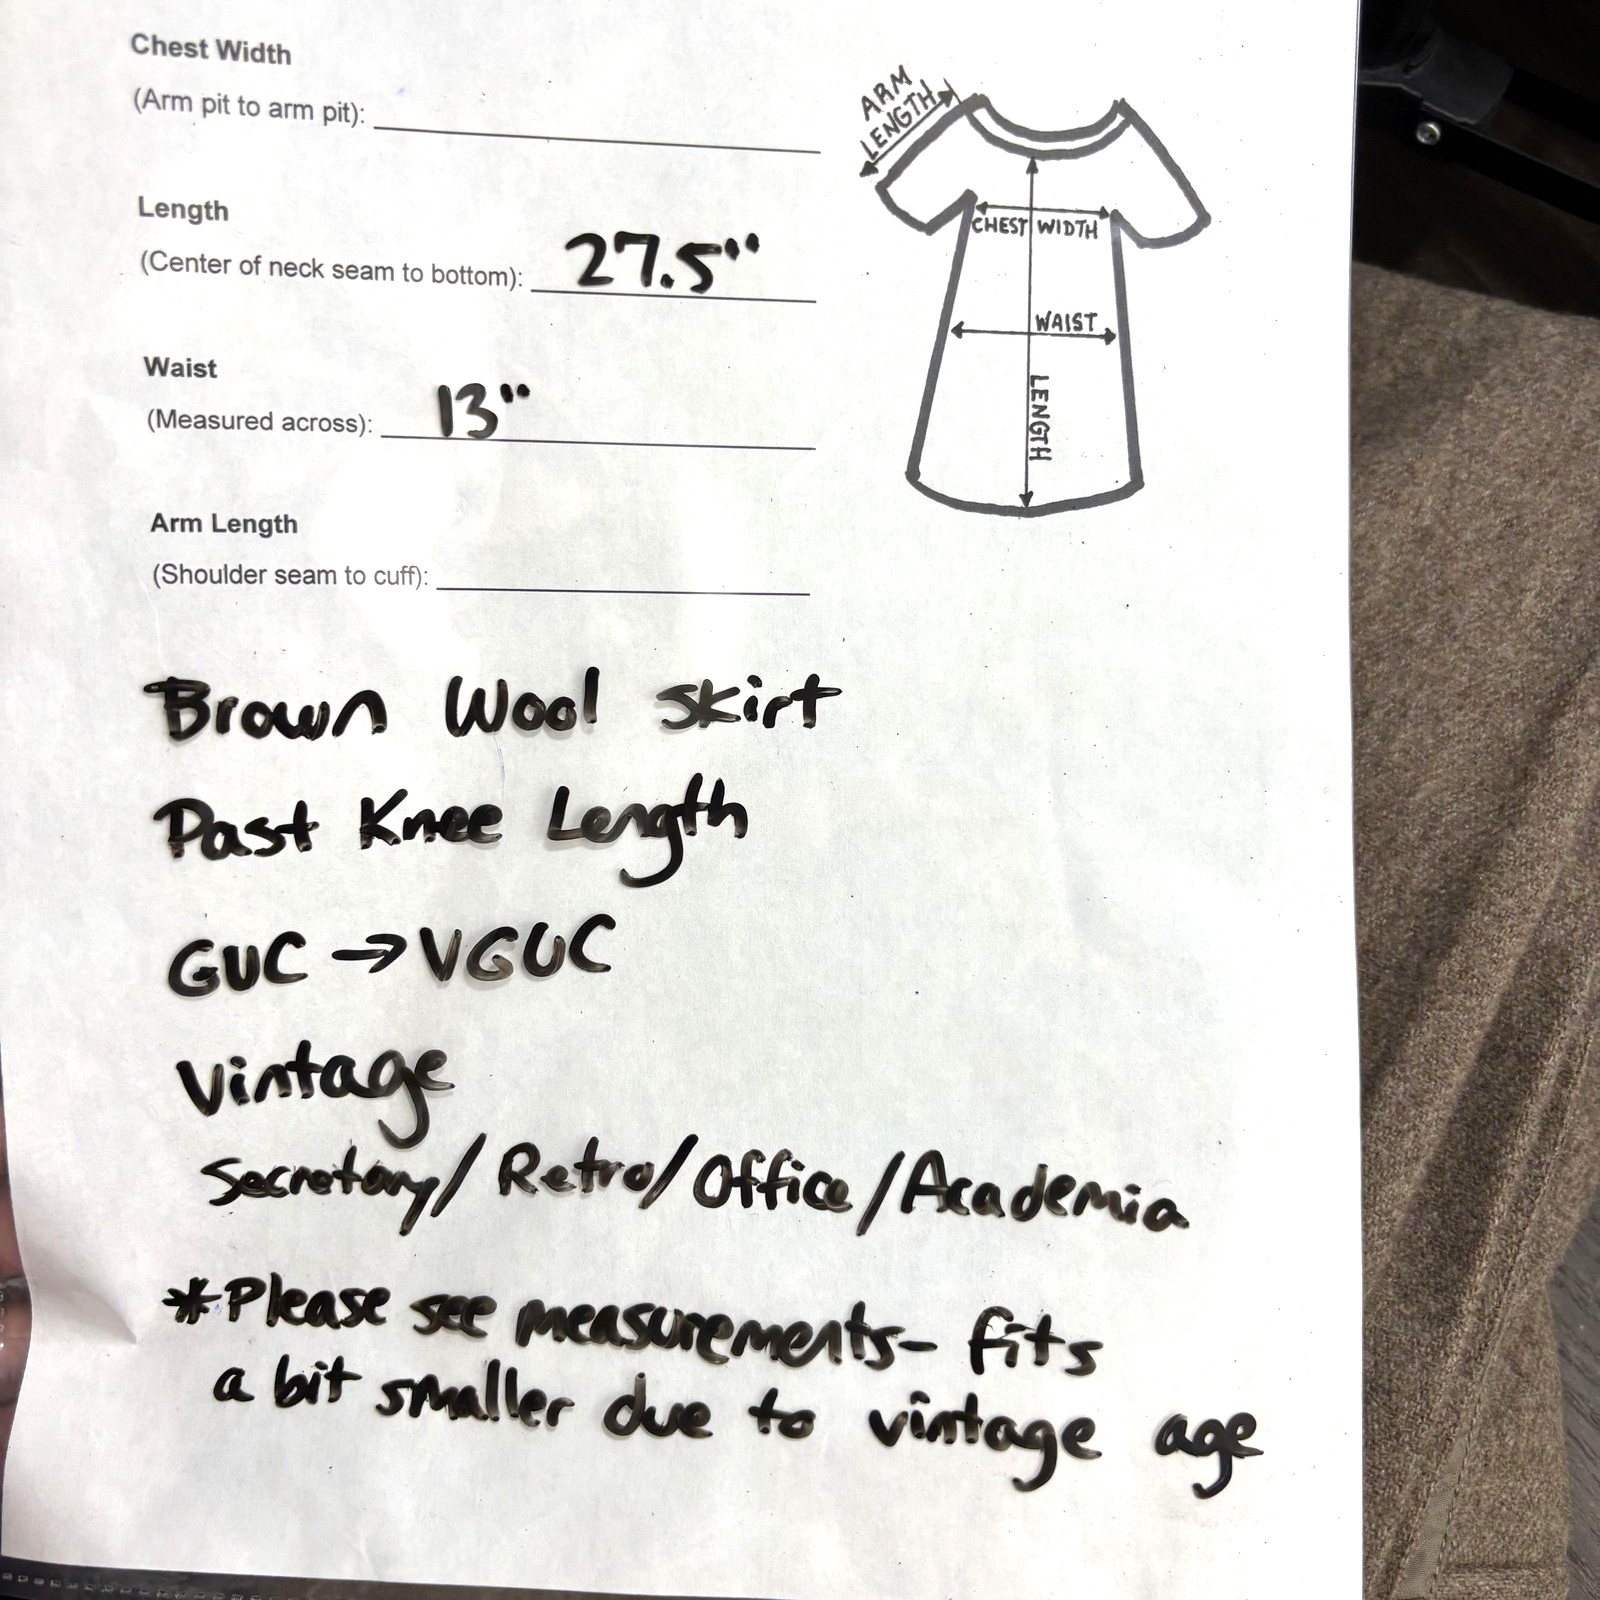 Chest Width
(Arm pit to arm pit):
Length
(Center of neck seam to bottom): 27.5"
Waist
(Measured across): 13"
Arm Length
(Shoulder seam to cuff):
ARM
LENGTH
CHEST WIDTH
WAIST
LENGTH
Brown Wool Skirt
Past Knee Length
GUC → VGUC
Vintage
Secretary/Retro/Office/Academia
*Please see measurements- fits
a bit smaller due to vintage age